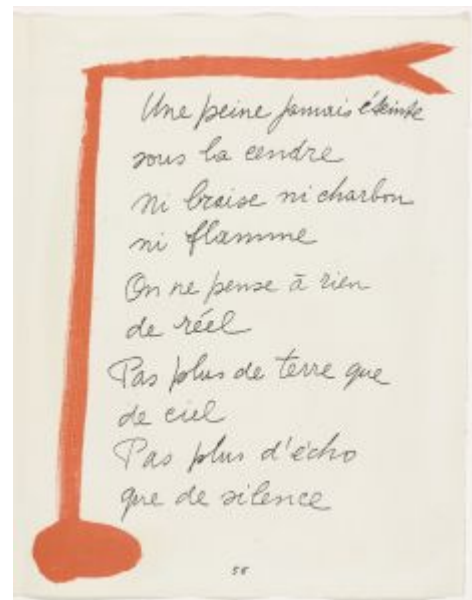 Une peine jamais éteinte
sous la cendre
ni braise ni charbon
ni flamme
On ne pense à rien
de réel
Pas plus de terre que
de ciel
Pas plus d'écho
que de silence
58